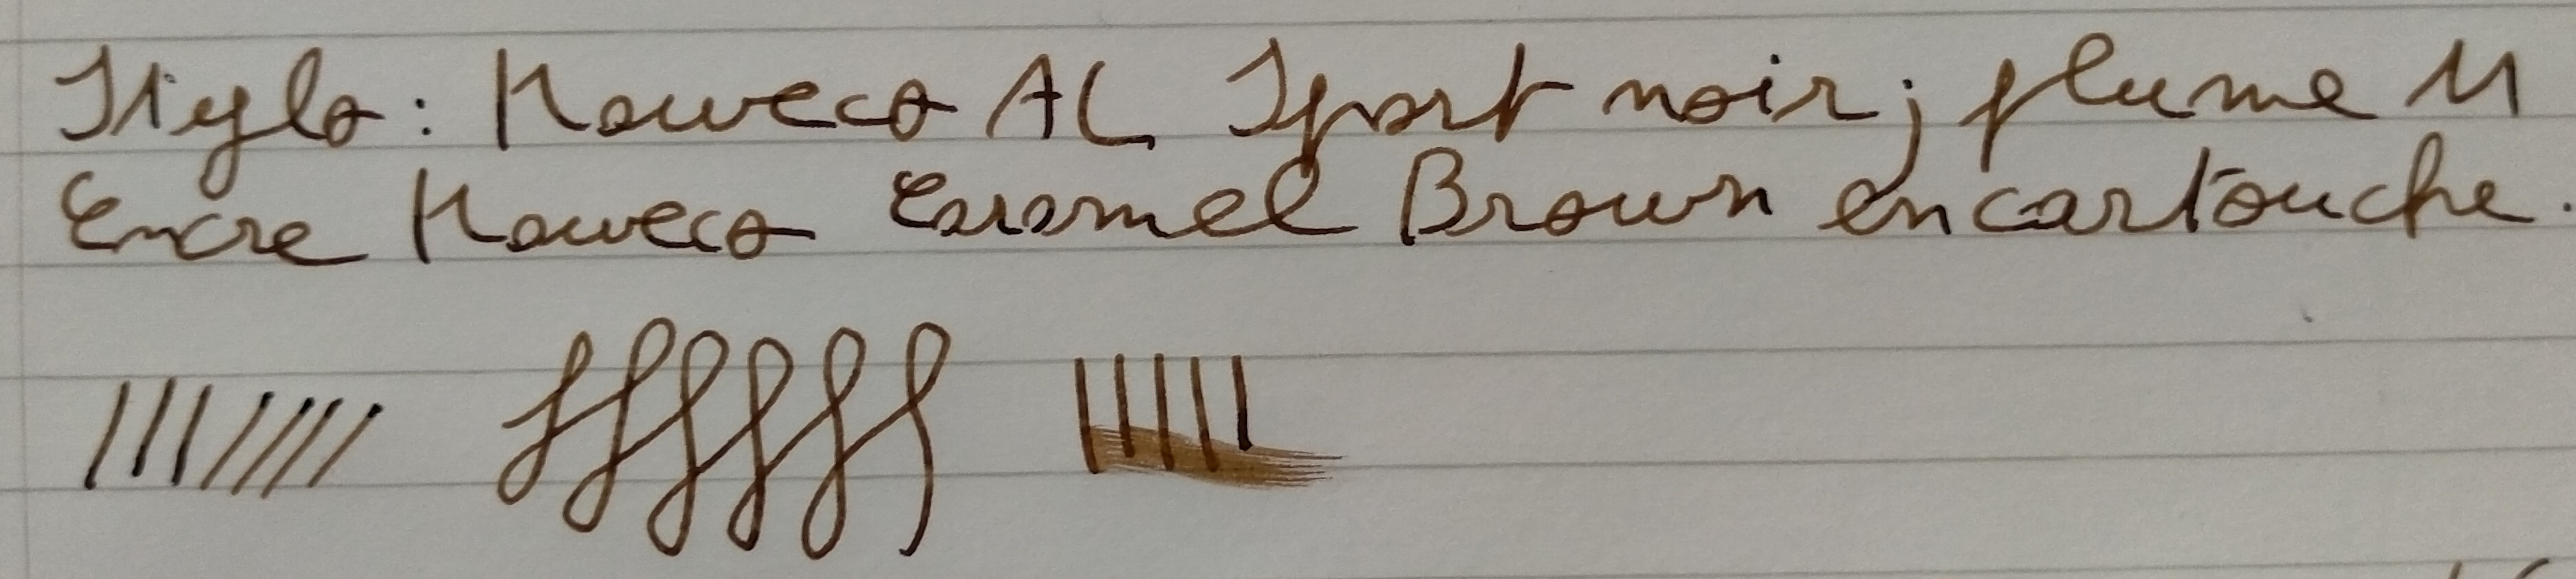 Stylo : Kaweco AL Sport noir ; plume M
Encre Kaweco Caramel Brown en cartouche.